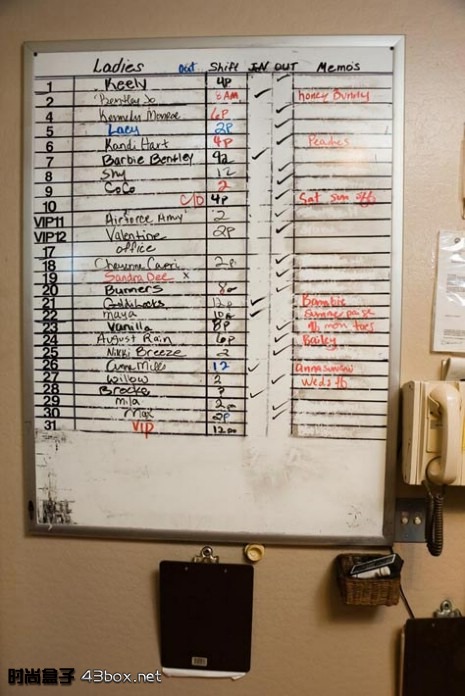 Ladies out Shift IN OUT Memo's
1 Keely 4p
2 Bentley Jo AM honey Bunny
4 Kennedy Monroe 6p
5 Lacy 2p
6 Kandi Hart 4p Peaches
7 Barbie Bentley 9a
8 Shy 12
9 CoCo 2
10 C/D 4p Sat sun offs
VIP11 Airforce Amy 2
VIP12 Valentine 2p
17 office
18 Cheyenne 2p
19 Sandra Dee x
20 Bunners
21 Goldilocks 12p Bambie
22 maya 10a Summer paige
23 Vanilla 8p mon tues
24 August Rain 6p Bailey
25 Nikki Breeze 2
26 Anna Mills 12
27 Willow 2 Weds
28 Brooke 3
29 mila 2p
30 Max 2p
31 VIP 12
时尚盒子 43box.net